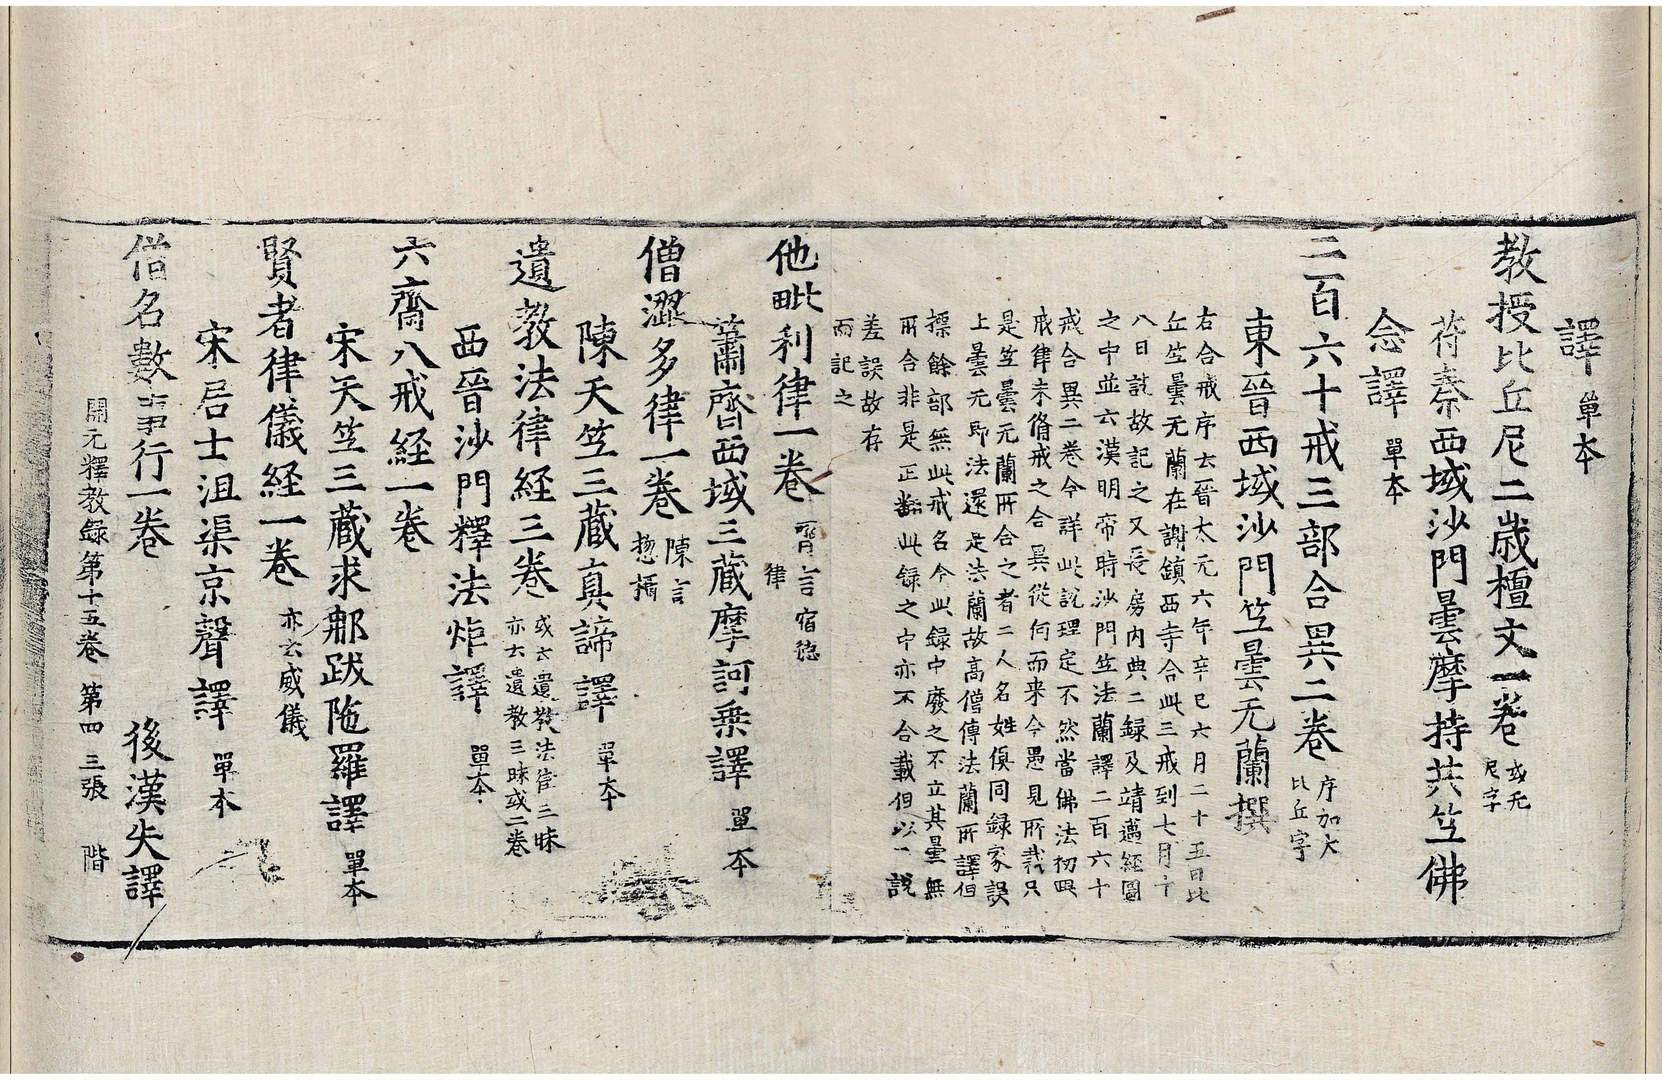 譯單本
教授比丘尼二歳檀文一卷或无尼字
苻秦西域沙門曇摩持共竺佛
念譯單本
三百六十戒三部合異二卷序加大比丘字
東晉西域沙門竺曇无蘭撰
右合戒序云晉太元六年辛巳六月二十五日比
丘竺曇无蘭在謝鎮西寺合此三戒到七月十
八日訖故記之又長房内典二録及靖邁經圖
之中並云漢明帝時沙門竺法蘭譯二百六十
戒合異二卷今詳此説理定不然當佛法初興
戒律未備戒之合異從何而来今愚見所裁只
是竺曇元蘭所合之者二人名姓俱同録家誤
上曇元即法還是法蘭故高僧傳法蘭所譯但
摽餘部無此戒名今此録中廢之不立其量無
所合非是正翻此録之中亦不合載但以一説
差誤故存
而記之
他毗利律一卷齊言宿徳律
蕭齊西域三藏摩訶乗譯單本
僧澀多律一卷陳言揔攝
陳天竺三藏真諦譯單本
遺教法律経三卷或云遺教法律三昧亦云遺教三昧或二卷
西晉沙門釋法炬譯單本
六齋八戒経一卷
宋天竺三藏求郍跋陁羅譯單本
賢者律儀経一卷亦云威儀
宋居士沮渠京聲譯單本
僧名數事行一卷 後漢失譯
開元釋教録第十五卷 第四三張 階